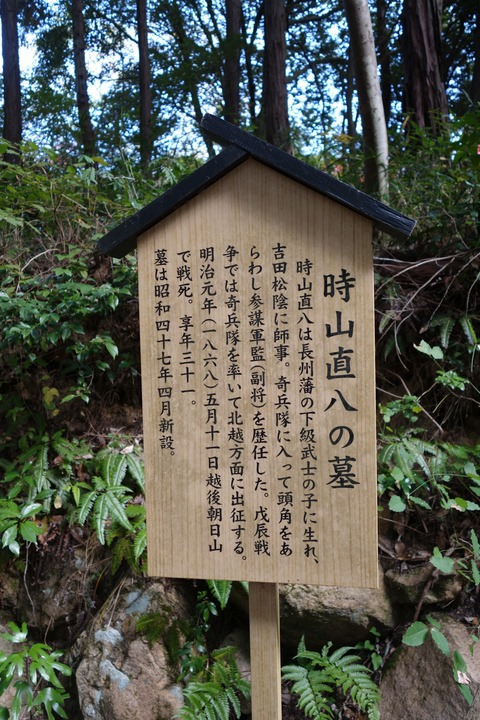 時山直八の墓
時山直八は長州藩の下級武士の子に生れ、
吉田松陰に師事。奇兵隊に入って頭角をあ
らわし参謀軍監（副将）を歴任した。戊辰戦
争では奇兵隊を率いて北越方面に出征する。
明治元年（一八六八）五月十一日越後朝日山
で戦死。享年三十一。
墓は昭和四十七年四月新設。